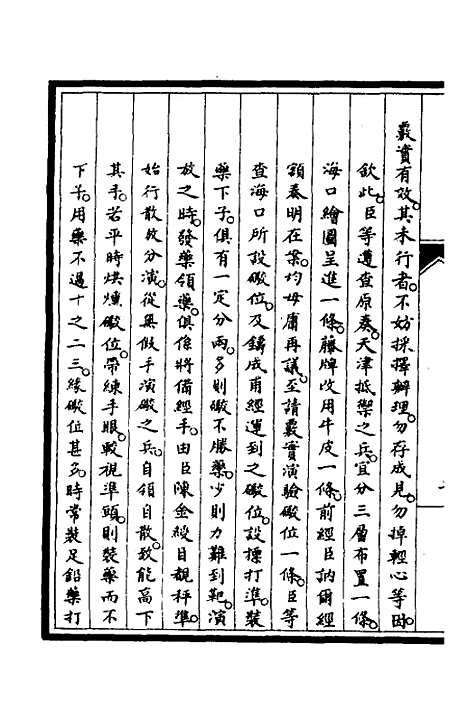 覈實有效其未行者不妨採擇辦理勿存成見勿掉輕心等因
欽此臣等遵查原奏天津抵禦之兵宜分三層布置一條
海口繪圖呈進一條藤牌改用牛皮一條前經臣訥爾經
額奏明在案均毋庸再議至請覈實演驗礮位一條臣等
查海口所設礮位及鑄成甫經運到之礮位設摽打準裝
藥下子俱有一定分兩多則礮不勝藥少則力難到靶演
放之時發藥領藥俱係將備經手由臣陳金綬目覩秤準
始行散放分演從無假手演礮之兵自領自散致能高下
其手若平時烘燻礮位帶練手眼較視準頭則裝藥而不
下子用藥不過十之二三緣礮位甚多時常裝足鉛藥打